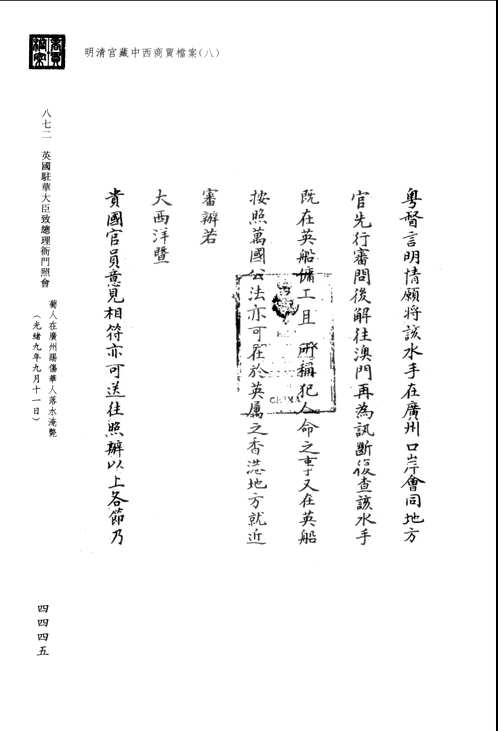 明清宮藏中西商貿檔案(八)
八七二 英國駐華大臣致總理衙門照會
葡人在廣州踢傷華人落水淹斃
(光緒九年九月十一日)
粵督言明情願將該水手在廣州口岸會同地方
官先行審問後解往澳門再為訊斷復查該水手
既在英船傭工且所稱犯人命之事又在英船
按照萬國公法亦可在於英屬之香港地方就近
審辦若
大西洋暨
貴國官員意見相符亦可送往照辦以上各節乃
四四四五